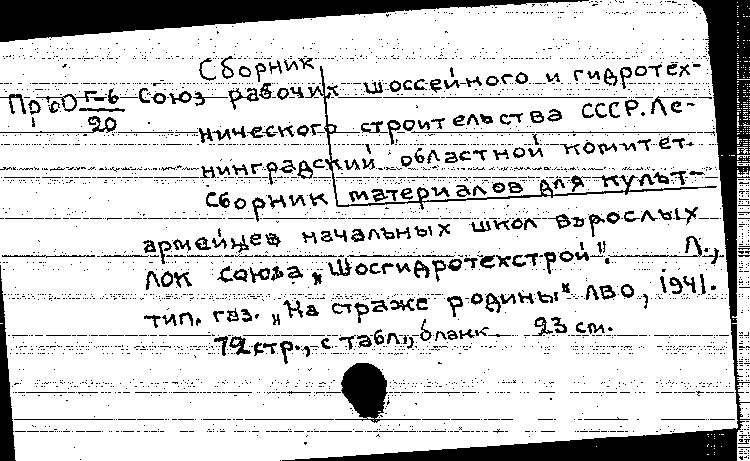 Сборник
Пр ьО Г-6/20 Союз рабочих шоссейного и гидротех-
нического строительства СССР. Ле-
нинградский областной комитет.
Сборник материалов для культ-
армейцев начальных школ взрослых
ЛОК союза „Шосгидротехстрой". Л.,
тип. газ. „На страже родины" ЛВО, 1941.
72 стр., с табл., бланк. 23 см.